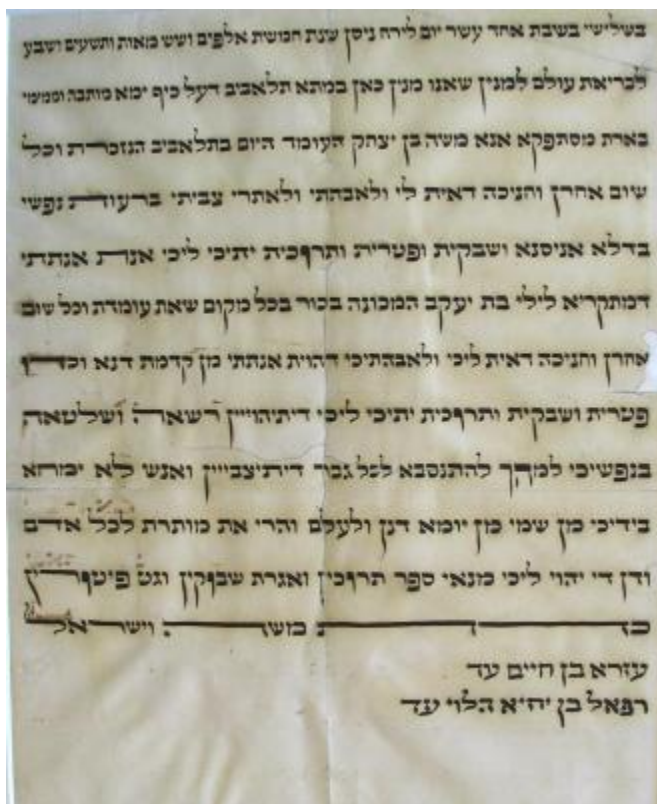 בשלישי בשבת אחד עשר יום לירח ניסן שנת חמשת אלפים ושש מאות ותשעים ושבע
לבריאת עולם למנין שאנו מנין כאן במתא תלאביב דעל כיף ימא מותבה וממימי
בארת מסתפקא אנא משה בן יצחק העומד היום בתלאביב הנזכרת וכל
שום אחרן וחניכה דאית לי ולאבהתי ולאתרי צביתי ברעות נפשי
בדלא אניסנא ושבקית ופטרית ותרוכית יתיכי ליכי אנת אנתתי
דמתקריא לילי בת יעקב המכונה בכור בכל מקום שאת עומדת וכל שום
אחרן וחניכה דאית ליכי ולאבהתיכי דהוית אנתתי מן קדמת דנא וכדו
פטרית ושבקית ותרוכית יתיכי ליכי דיתיהוייין רשאה ושלטאה
בנפשיכי למהך להתנסבא לכל גבר דיתיצבייין ואנש לא ימחא
בידיכי מן שמי מן יומא דנן ולעלם והרי את מותרת לכל אדם
ודן די יהוי ליכי מנאי ספר תרוכין ואגרת שבוקין וגט פיטורין
כדת משה וישראל
עזרא בן חיים עד
רפאל בן יחיא הלוי עד